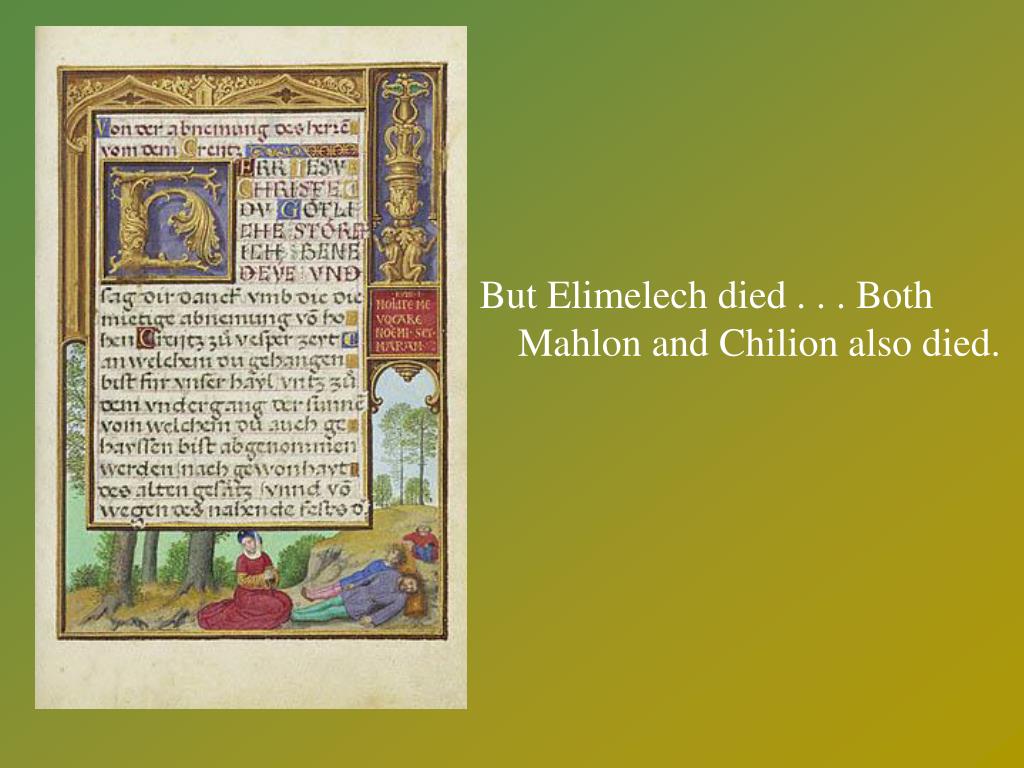 Von der abnemung des herrē
vom dem Creütz
HERR IESV
CHRISTE
DV GŌTLI
CHE STŌRE
ICH BENE
DEYE VND
sag dir danck vmb die die
mietige abnemung vō ho
hen Creütz zů vesper zeyt
an welchem du gehangen
bist für vnser hayl vntz zů
dem vndergang der sunnē
vom welchem du auch ge
hayssen bist abgenommen
werden nach gewonhayt
des alten gesätz vnnd vō
wegen des nahende fests d
NOLITE ME
VOCARE
NOEMI SET
MARAM
But Elimelech died . . . Both
Mahlon and Chilion also died.